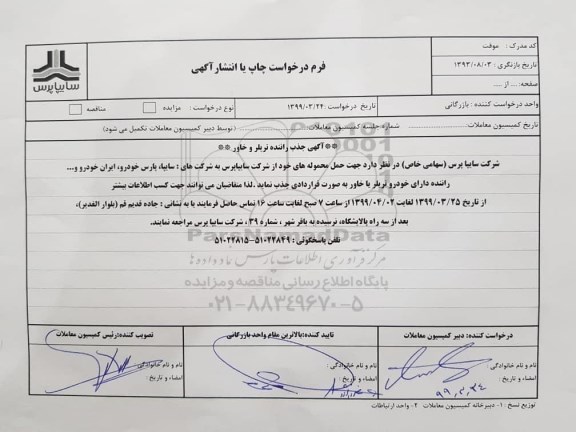 کد مدرک : موقت
تاریخ بازنگری : ۱۳۹۳/۰۸/۰۳
صفحه: ... از ....
فرم درخواست چاپ یا انتشار آگهی
سایپا پرس
واحد درخواست کننده : بازرگانی
تاریخ درخواست : ۱۳۹۹/۰۳/۲۴
نوع درخواست : مزایده مناقصه
تاریخ کمیسیون معاملات: شماره جلسه کمیسیون معاملات: (توسط دبیر کمیسیون معاملات تکمیل می شود)
** آگهی جذب راننده تریلر و خاور **
شرکت سایپا پرس (سهامی خاص) در نظر دارد جهت حمل محموله های خود از شرکت سایپاپرس به شرکت های : سایپا، پارس خودرو، ایران خودرو و...
راننده دارای خودرو تریلر یا خاور به صورت قراردادی جذب نماید .لذا متقاضیان می توانند جهت کسب اطلاعات بیشتر
از تاریخ ۱۳۹۹/۰۳/۲۵ لغایت ۱۳۹۹/۰۴/۰۲ از ساعت ۷ صبح لغایت ساعت ۱۶ تماس حاصل فرمایند یا به نشانی : جاده قدیم قم (بلوار الغدیر)،
بعد از سه راه پالایشگاه، نرسیده به باقر شهر ، شماره ۳۹ ، شرکت سایپا پرس مراجعه نمایند.
تلفن پاسخگوئی : ۵۱۰۲۲۸۴۹-۵۱۰۲۲۸۱۵
ParsNamadData
مرکز فرآوری اطلاعات پارس نماد داده ها
پایگاه اطلاع رسانی مناقصه و مزایده
۰۲۱-۸۸۳۴۹۶۷۰-۵
درخواست کننده: دبیر کمیسیون معاملات
تایید کننده:بالاترین مقام واحد بازرگانی
تصویب کننده:رئیس کمیسیون معاملات
نام و نام خانوادگی :
امضاء و تاریخ :
۹۹,۳,۲۴
نام و نام خانوادگی :
امضاء و تاریخ :
نام و نام خانوادگی:
امضاء و تاریخ :
توزیع نسخ : ۱- دبیرخانه کمیسیون معاملات ۲- واحد ارتباطات